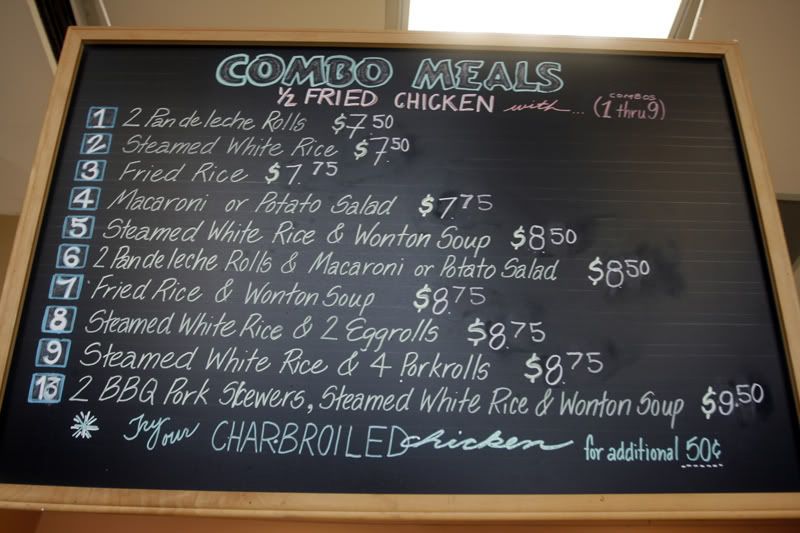 COMBO MEALS
1/2 FRIED CHICKEN with... COMBOS (1 thru 9)
1 2 Pan de leche Rolls $7.50
2 Steamed White Rice $7.50
3 Fried Rice $7.75
4 Macaroni or Potato Salad $7.75
5 Steamed White Rice & Wonton Soup $8.50
6 2 Pan de leche Rolls & Macaroni or Potato Salad $8.50
7 Fried Rice & Wonton Soup $8.75
8 Steamed White Rice & 2 Eggrolls $8.75
9 Steamed White Rice & 4 Porkrolls $8.75
13 2 BBQ Pork Skewers, Steamed White Rice & Wonton Soup $9.50
* Try our CHARBROILED chicken for additional 50¢